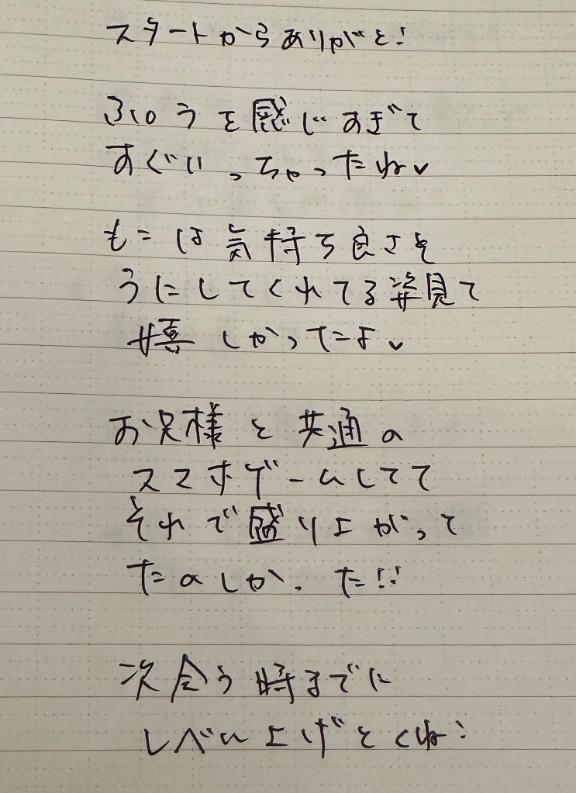 スタートからありがと!
ふゆうを感じすぎて
すぐいっちゃったね♥
もこは気持ち良さそ
うにしてくれてる姿見て
嬉しかったよ♥
お兄様と共通の
スマホゲームしてて
それで盛り上がって
たのしかった!!
次会う時までに
レベル上げとくね!